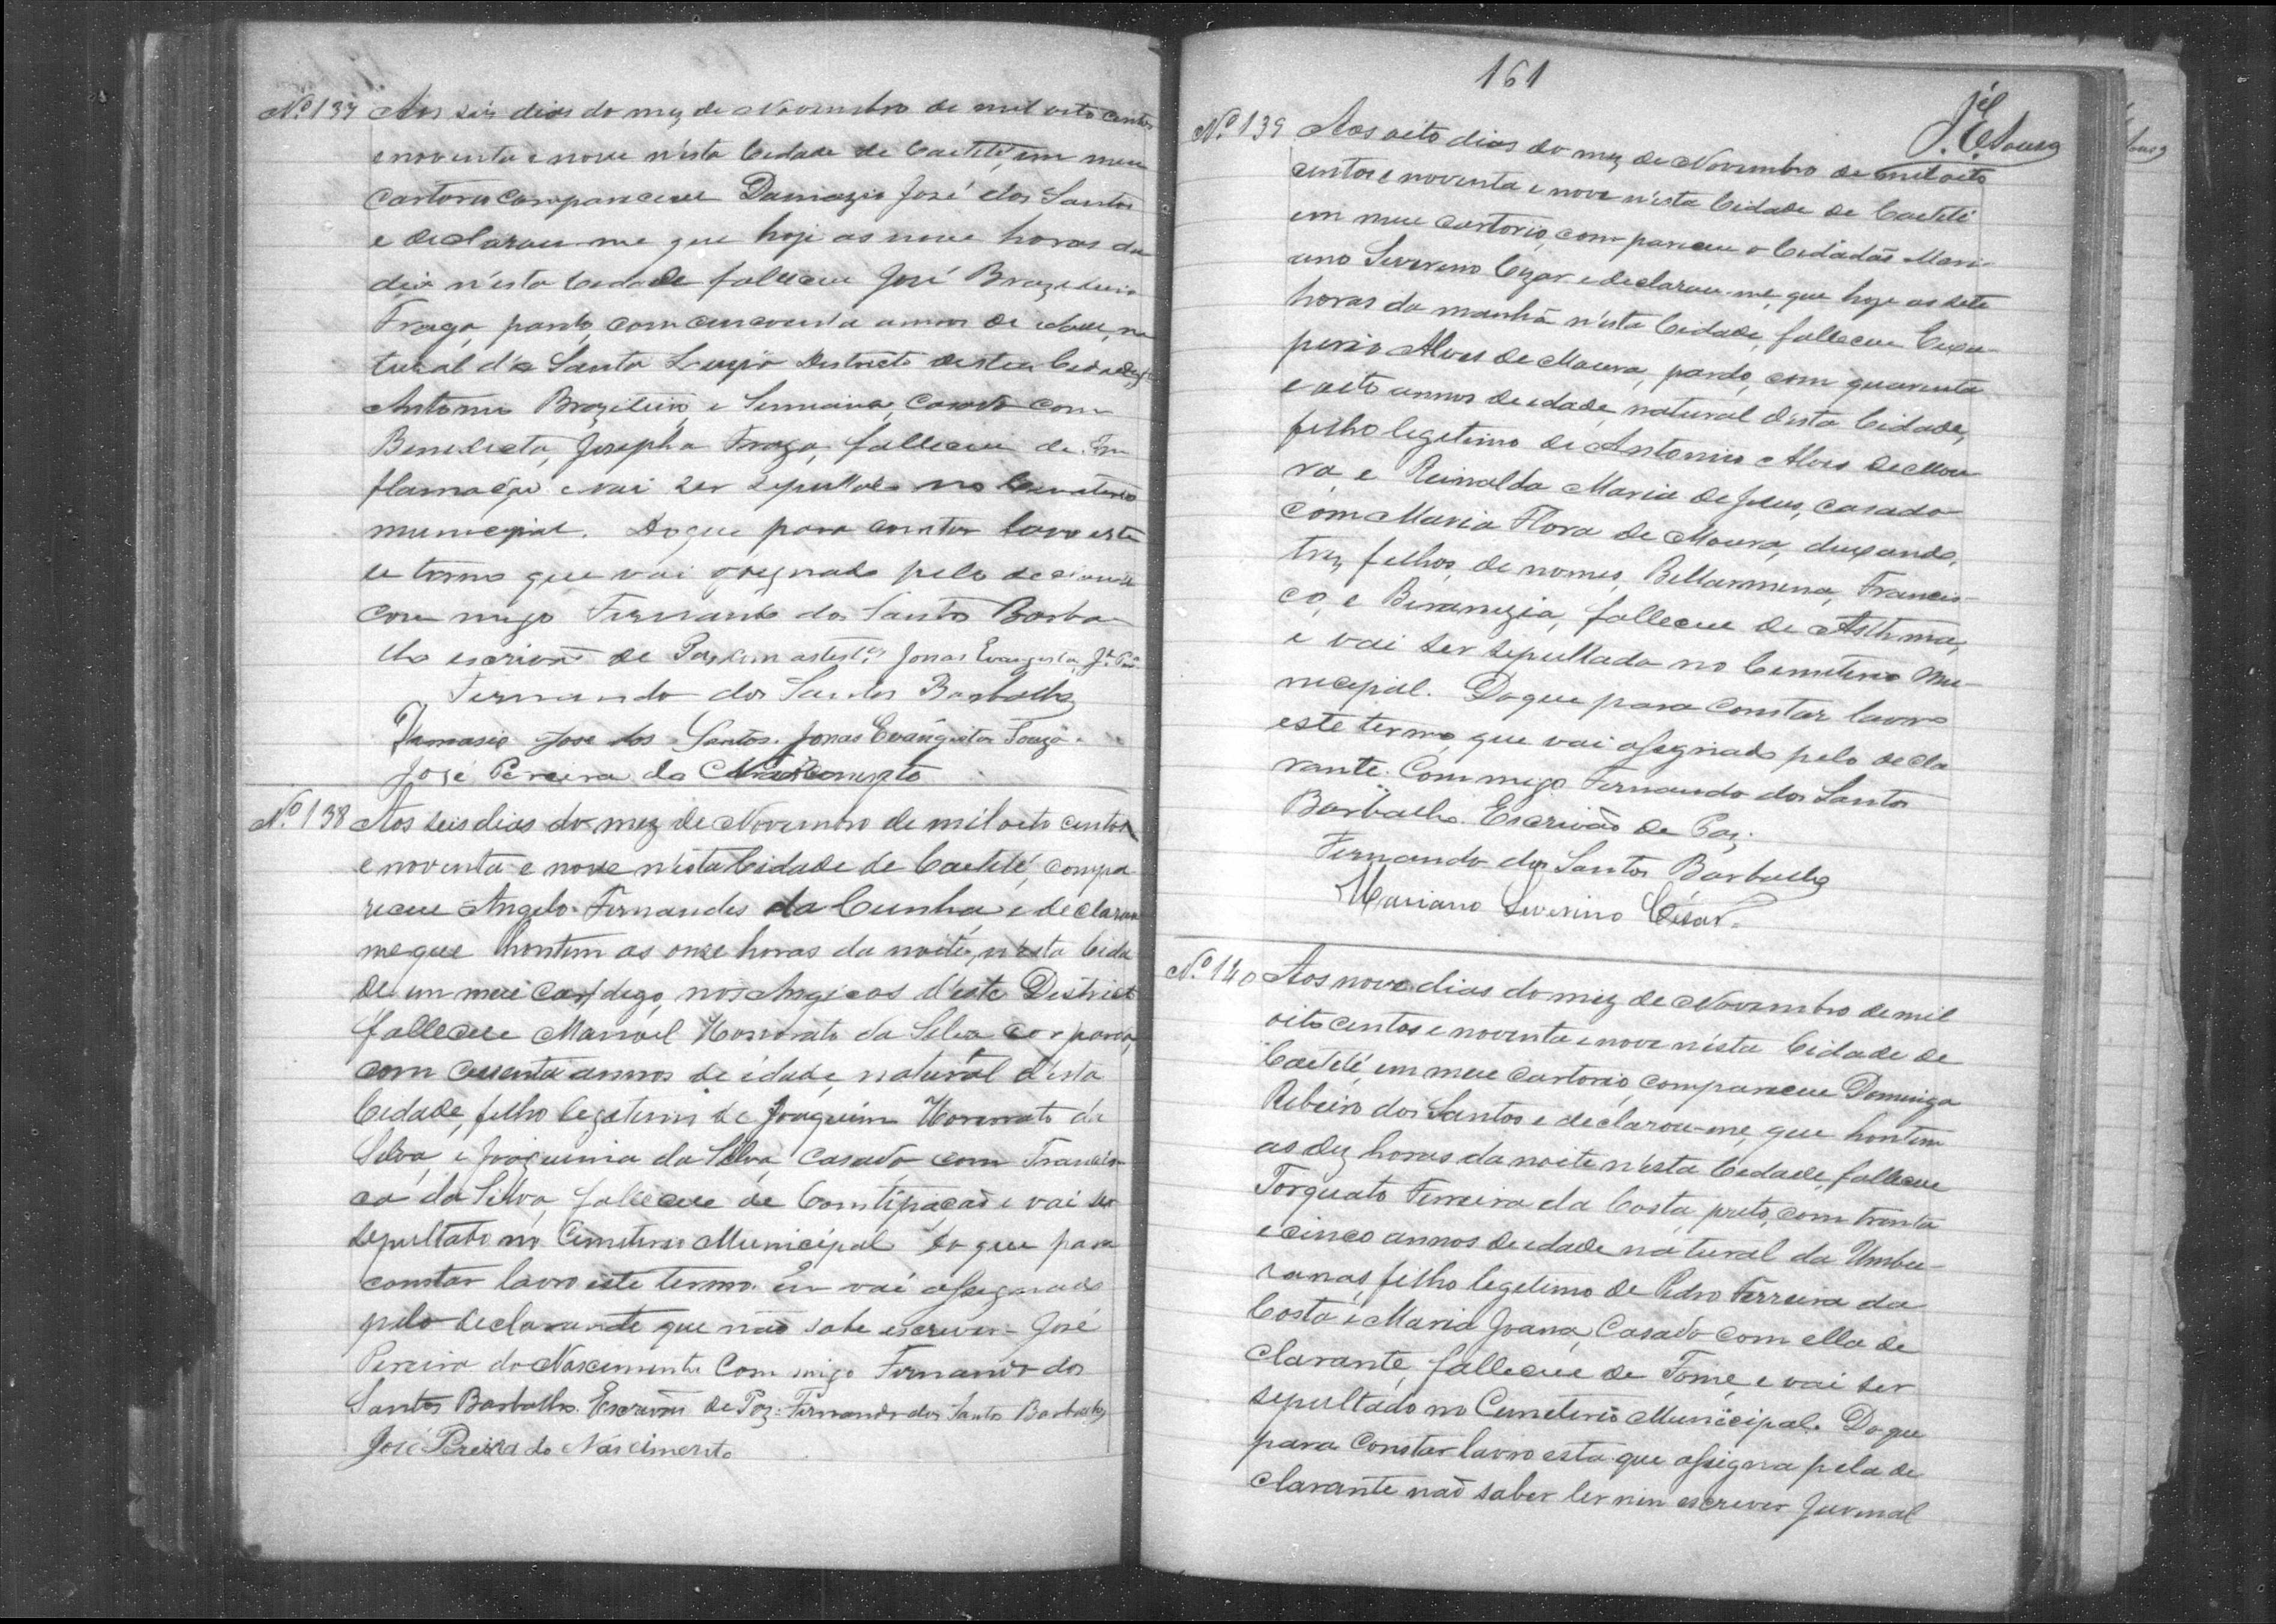 Nº 137 Aos seis dias do mez de Novembro de mil oito centos
e noventa e nove n'esta Cidade de Caetité, em meu
Cartorio compareceu Damazio José dos Santos
e declarou-me que hoje as nove horas do
dia n'esta Cidade falleceu José Brazileiro
Fraga, pardo, com cincoenta annos de idade, na
tural de Santa Luzia Districto desta Cidade,
Antonio Brazileiro e Semiana, casado com
Benedicta Josepha Fraga, falleceu de In
flamação e vai ser sepultado no Cemiterio
municipal. Do que para constar lavro este
te termo que vai assignado pelo declarante
com migo Fernando dos Santos Barba
lho escrivão de Paz com as test.as Jonas Evangista,
Fernando dos Santos Barbalho
Damasio José dos Santos. Jonas Evangista Souza.
José Pereira do Nascimento
Nº 138 Aos seis dias do mez de Novembro de mil oito centos
e noventa e nove n'esta Cidade de Caetité, compa
receu Angelo Fernandes da Cunha e declarou
me que hontem as onze horas da noite, n'esta Cida
de em meu Car digo, nos Angicos d'este District
falleceu Manoel Honorato da Silva cor parda,
com annos de idade, natural d'esta
Cidade, filho legitimo de Joaquim Honorato da
Silva, e Joaquina da Silva casado com Francis
ca da Silva, falleceu de Constipação e vai ser
sepultado no Cemiterio Municipal do que para
constar lavro este termo. Em vai assignado
pelo declarante que não sabe escrever José
Pereira do Nascimento Com migo Fernando dos
Santos Barbalho. Escrivão de Paz. Fernando dos Santos Barbalho
José Pereira do Nascimento
161
J. E. Souza
Nº 139 Aos oito dias do mez de Novembro de mil oito
centos e noventa e nove n'esta Cidade de Caetité
em meu cartorio, compareceu o Cidadão Mari
ano Severino Cezar e declarou-me, que hoje as sete
horas da manhã n'esta Cidade, falleceu Exu
perio Alves de Moura, pardo, com quarenta
e oito annos de edade, natural d'esta Cidade,
filho legitimo de Antonio Alves de Mou
ra, e Reinalda Maria de Jesus, casado
com Maria Flora de Moura, deixando,
trez filhos, de nomes, Bellarmina, Francis-
co, e Beranizia, falleceu de Asthma,
e vai ser sepultado no Cemiterio Mu-
nicipal. Do que para constar lavro
este termo, que vai assignado pelo decla
rante. Com migo Fernando dos Santos
Barbalho. Escrivão de Paz.
Fernando dos Santos Barbalho
Mariano Severino César.
Nº 140 Aos nove dias do mez de Novembro de mil
oito centos e noventa e nove n'esta Cidade de
Caetité, em meu cartorio, compareceu Dominga
Ribeiro dos Santos e declarou-me, que hontem
as dez horas da noite n'esta Cidade, falleceu
Torquato Ferreira da Costa, preto, com trinta
e cinco annos de edade natural da Umbu-
ranas, filho legitimo de Pedro Ferreira da
Costa e Maria Joana, Casado com ella de
clarante, falleceu de Tome, e vai ser
sepultado no Cemiterio Municipal. Do que
para constar lavro esta que assigna pela de
clarante não saber ler nem escrever Juvenal